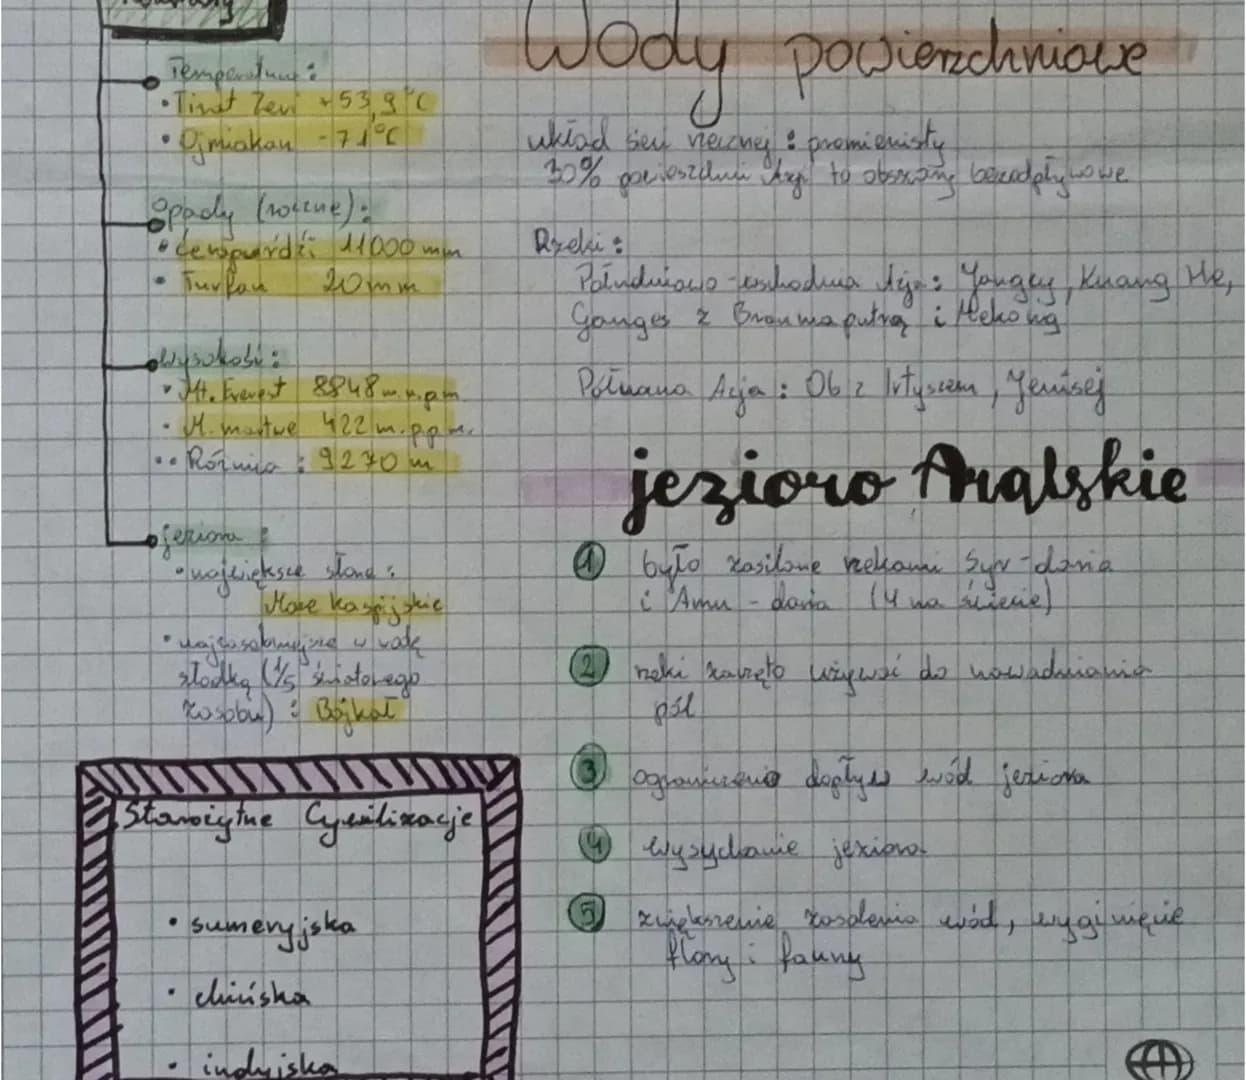 Rekordy
Temperatura:
• Tirat Zevi +53,9°C
• Ojmiakon -71°C
Opady (roczne):
• Czerapuńdżi 11000 mm
• Turfan 20mm
Wysokość:
• Mt. Everest 8848 m.n.p.m.
• M. martwe 422 m.p.p.m.
•• Różnica: 9270 m
jeziora:
• największe słone:
Morze kaspijskie
• najzasobniejsze w wodę
słodką (1/5 światowego
zasobu): Bajkał
Starożytne Cywilizacje
• sumeryjska
• chińska
• indyjska
Wody powierzchniowe
układ sieci rzecznej: promienisty
30% powierzchni Azji to obszary bezodpływowe
Rzeki:
Południowo-wschodnia Azja: Jangcy, Kuang He,
Ganges z Bramaputrą i Mekong
Północna Azja: Ob z Irtyszem, Jenisej
jezioro Aralskie
1 było zasilane rzekami Syr-daria
i Amu-daria (4 na świecie)
2 rzeki zaczęto używać do nawadniania
pól
3 ograniczenie dopływu wód jeziora
4 wysychanie jeziora
5 zwiększenie zasolenia wód, wyginięcie
flory i fauny